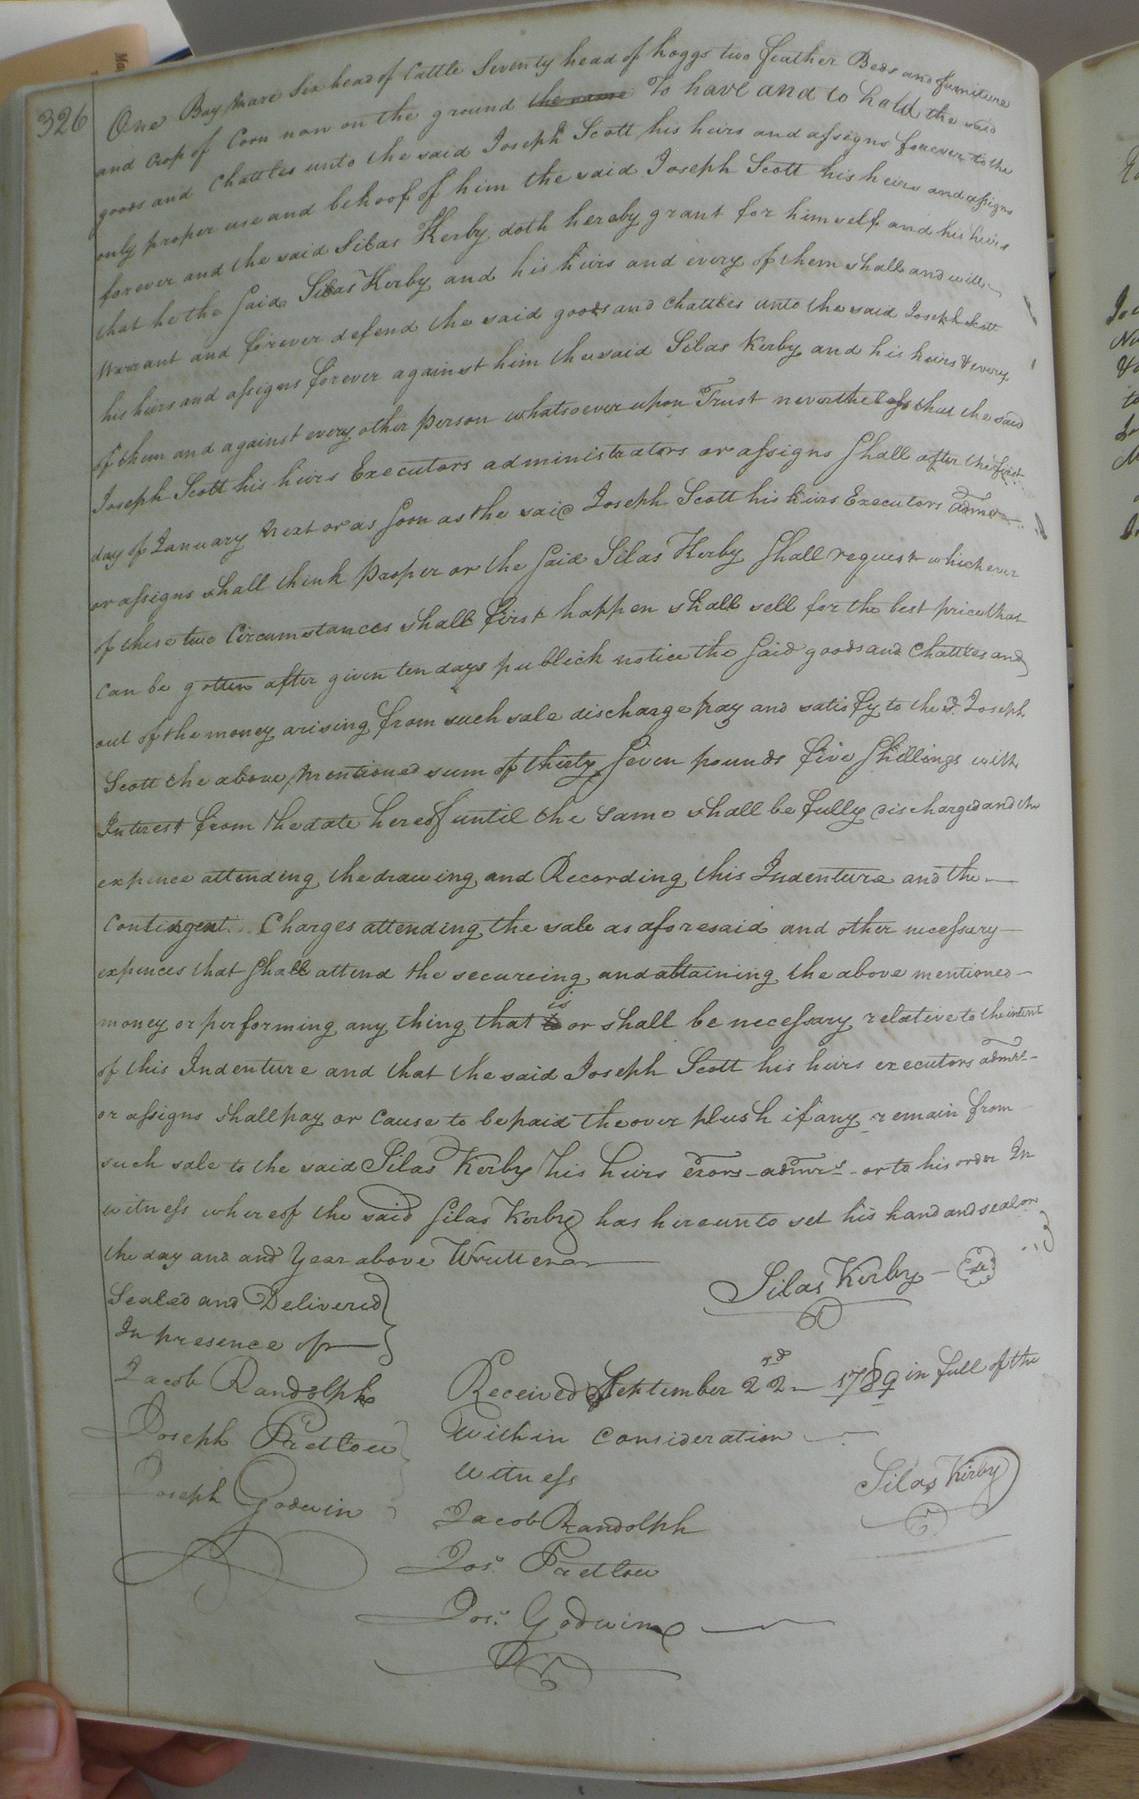 326
One Bay Mare Six head of Cattle Seventy head of hoggs two feather Beds and furniture
and Crop of Corn now on the ground the same To have and to hold the said
goods and Chattles unto the said Joseph Scott his heirs and assigns forever to the
only proper use and behoof of him the said Joseph Scott his heirs and assigns
forever and the said Silas Kerby doth hereby grant for himself and his heirs
that he the said Silas Kerby and his heirs and every of them shall and will
Warrant and forever defend the said goods and Chattles unto the said Joseph Scott
his heirs and assigns forever against him the said Silas Kerby and his heirs & every
of them and against every other Person whatsoever upon Trust nevertheless that the said
Joseph Scott his heirs Executors administrators or assigns shall after the first
day of January next or as soon as the said Joseph Scott his heirs Executors admrs
or assigns shall think Proper or the said Silas Kerby shall request which ever
of these two Circumstances shall first happen shall sell for the best price that
Can be gotten after given ten days publick notice the said goods and Chattles and
out of the money arising from such sale discharge pay and satisfy to the sd. Joseph
Scott the above mentioned sum of thirty seven pounds five shillings with
Interest from the date hereof until the same shall be fully discharged and the
expence attending the drawing and Recording this Indenture and the
Contingent Charges attending the sale as aforesaid and other necessary
expences that shall attend the secureing and abtaining the above mentioned
money or performing any thing that to is or shall be necessary relative to the intent
of this Indenture and that the said Joseph Scott his heirs executors admrs
or assigns shall pay or Cause to be paid the over plush if any remain from
such sale to the said Silas Kerby his heirs exors admrs or to his order In
witness whereof the said Silas Kerby has hereunto set his hand and seal on
the day and and Year above Written
Silas Kirby
Sealed and Delivered
In presence of
Jacob Randolph
Joseph Pretlow
Joseph Godwin
Received September 22nd 1789 in full of the
Within Consideration
Silas Kirby
Witness
Jacob Randolph
Jos. Pretlow
Jos. Godwin